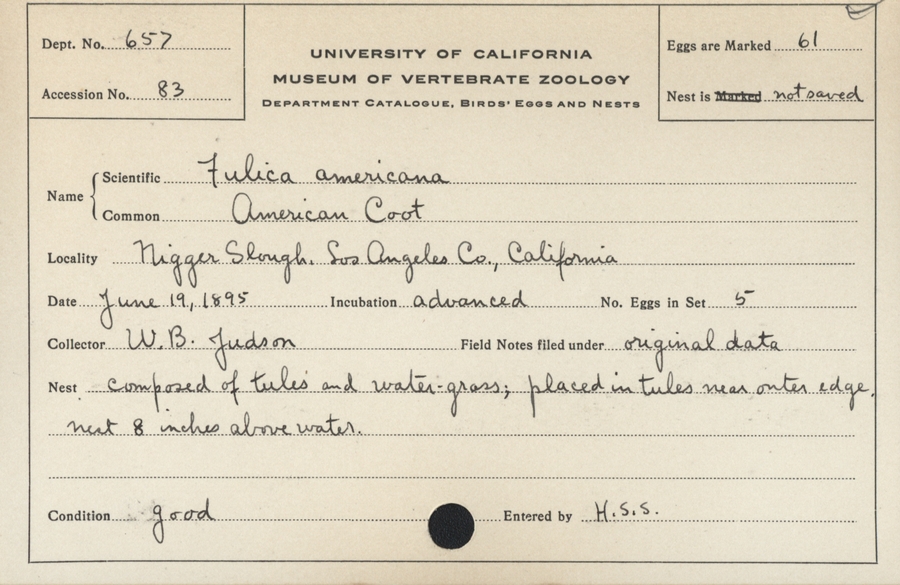 Dept. No. 657
Accession No. 83
UNIVERSITY OF CALIFORNIA
MUSEUM OF VERTEBRATE ZOOLOGY
DEPARTMENT CATALOGUE, BIRDS' EGGS AND NESTS
Eggs are Marked 61
Nest is Marked not saved
Name
Scientific Fulica americana
Common American Coot
Locality Nigger Slough. Los Angeles Co., California
Date June 19, 1895 Incubation advanced No. Eggs in Set 5
Collector W. B. Judson Field Notes filed under original data
Nest composed of tules and water-grass; placed in tules near outer edge,
nest 8 inches above water.
Condition good Entered by H.S.S.